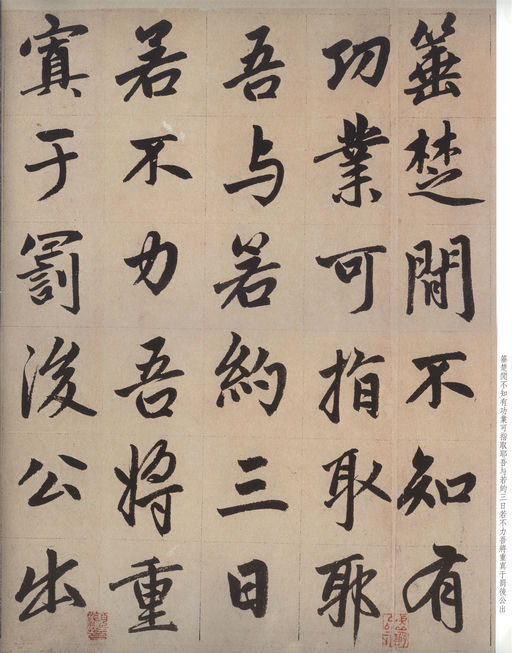 箠楚間不知有
功業可指取耶
吾与若約三日
若不力吾將重
寘于罰後公出
箠楚間不知有功業可指取耶吾与若約三日若不力吾將重寘于罰後公出